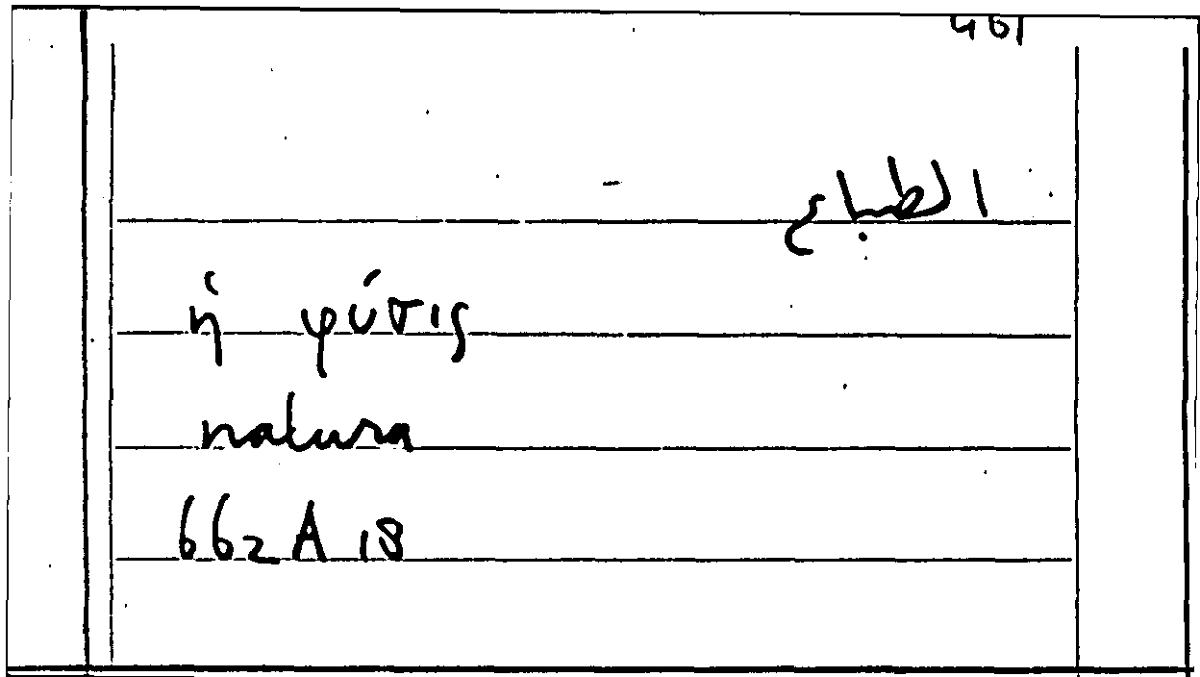 الطباع
ἡ φύσις
natura
662 A 18